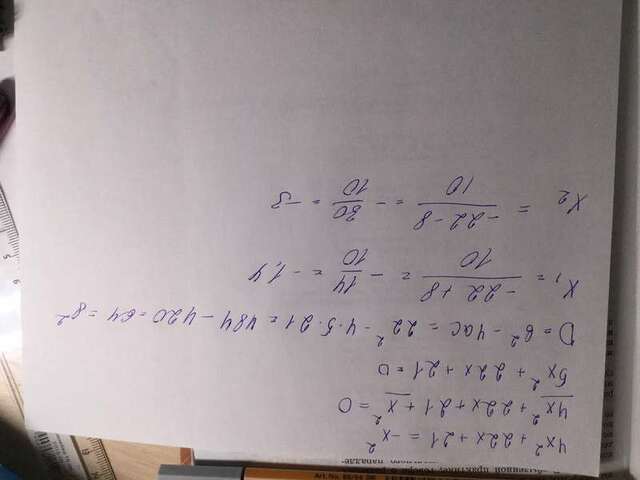 4x² + 22x + 21 = -x²
4x² + 22x + 21 + x² = 0
5x² + 22x + 21 = 0
D = b² - 4ac = 22² - 4·5·21 = 484 - 420 = 64 = 8²
x₁ = (-22 + 8)/10 = -14/10 = -1,4
x₂ = (-22 - 8)/10 = -30/10 = -3